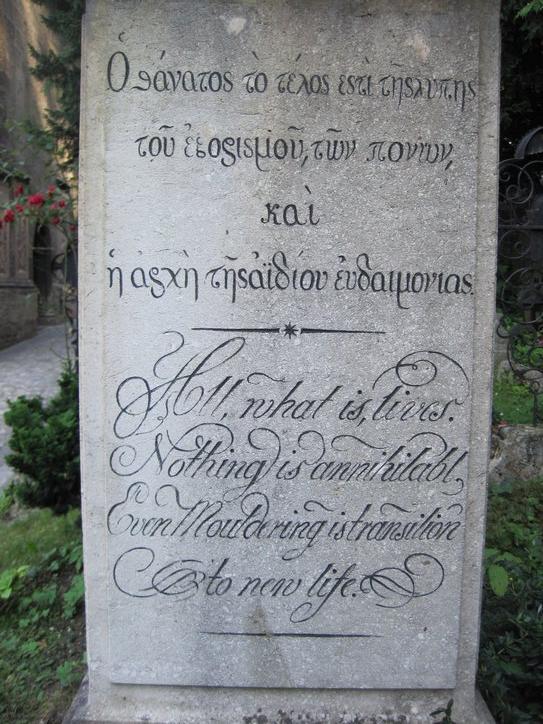 Ὁ θάνατος τὸ τέλος εςτὶ τῆς λυπης
τοῦ ἐξορισμοῦ, τῶν πονων,
καὶ
ἡ ἀρχὴ τῆς ἀϊδίου ἐυδαιμονιας.
All, what is, lives.
Nothing is annihilabl,
Even Mouldering is transition
to new life.